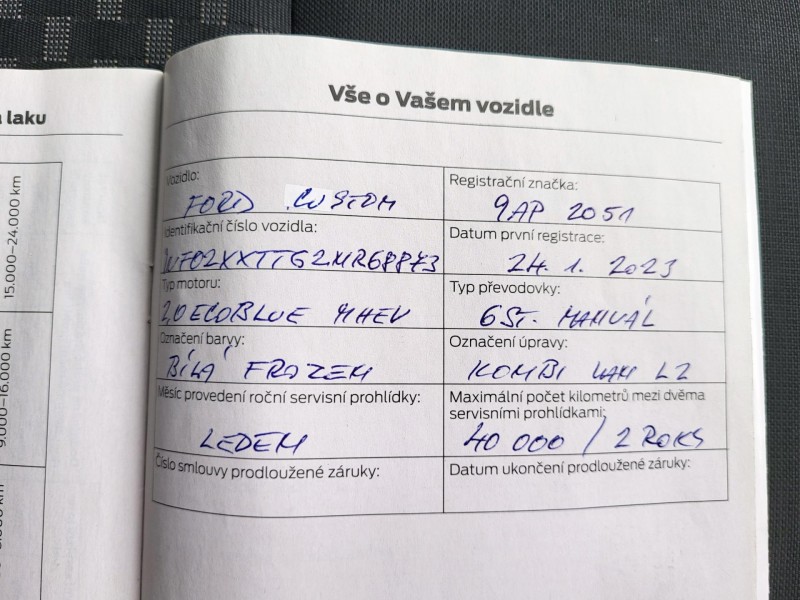 laku
15.000–24.000 km
9.000–16.000 km
Vše o Vašem vozidle
Vozidlo:
FORD CUSTOM
Registrační značka:
9AP 2051
Identifikační číslo vozidla:
WF02XXTTG2MR68873
Datum první registrace:
24. 1. 2023
Typ motoru:
2,0 ECOBLUE MHEV
Typ převodovky:
6ST. MANUÁL
Označení barvy:
BÍLÁ FROZEN
Označení úpravy:
KOMBI L2
Měsíc provedení roční servisní prohlídky:
LEDEN
Maximální počet kilometrů mezi dvěma
servisními prohlídkami:
40 000 / 2 ROKY
Číslo smlouvy prodloužené záruky:
Datum ukončení prodloužené záruky: